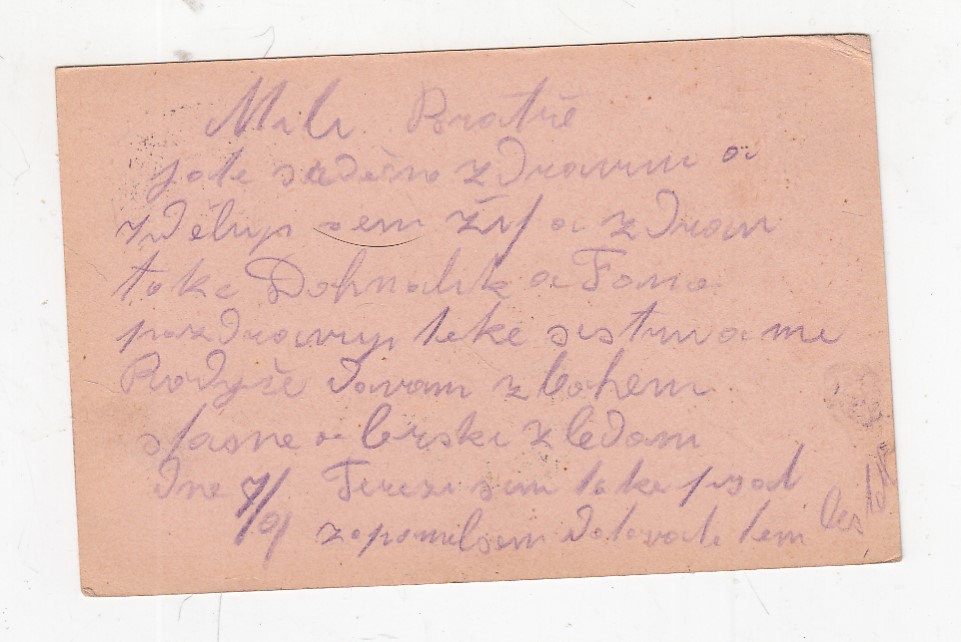 Mili Bratře
jote srdečno zdravim a
zděluji sem živ a zdrav
take Dohnalik a Fana
pozdravuji také sistru a me
Rodyče davam zbohem
sťasne a brski zledani
Dne 7/9 Terezi sem take psal
zapomilsem dotovat lem